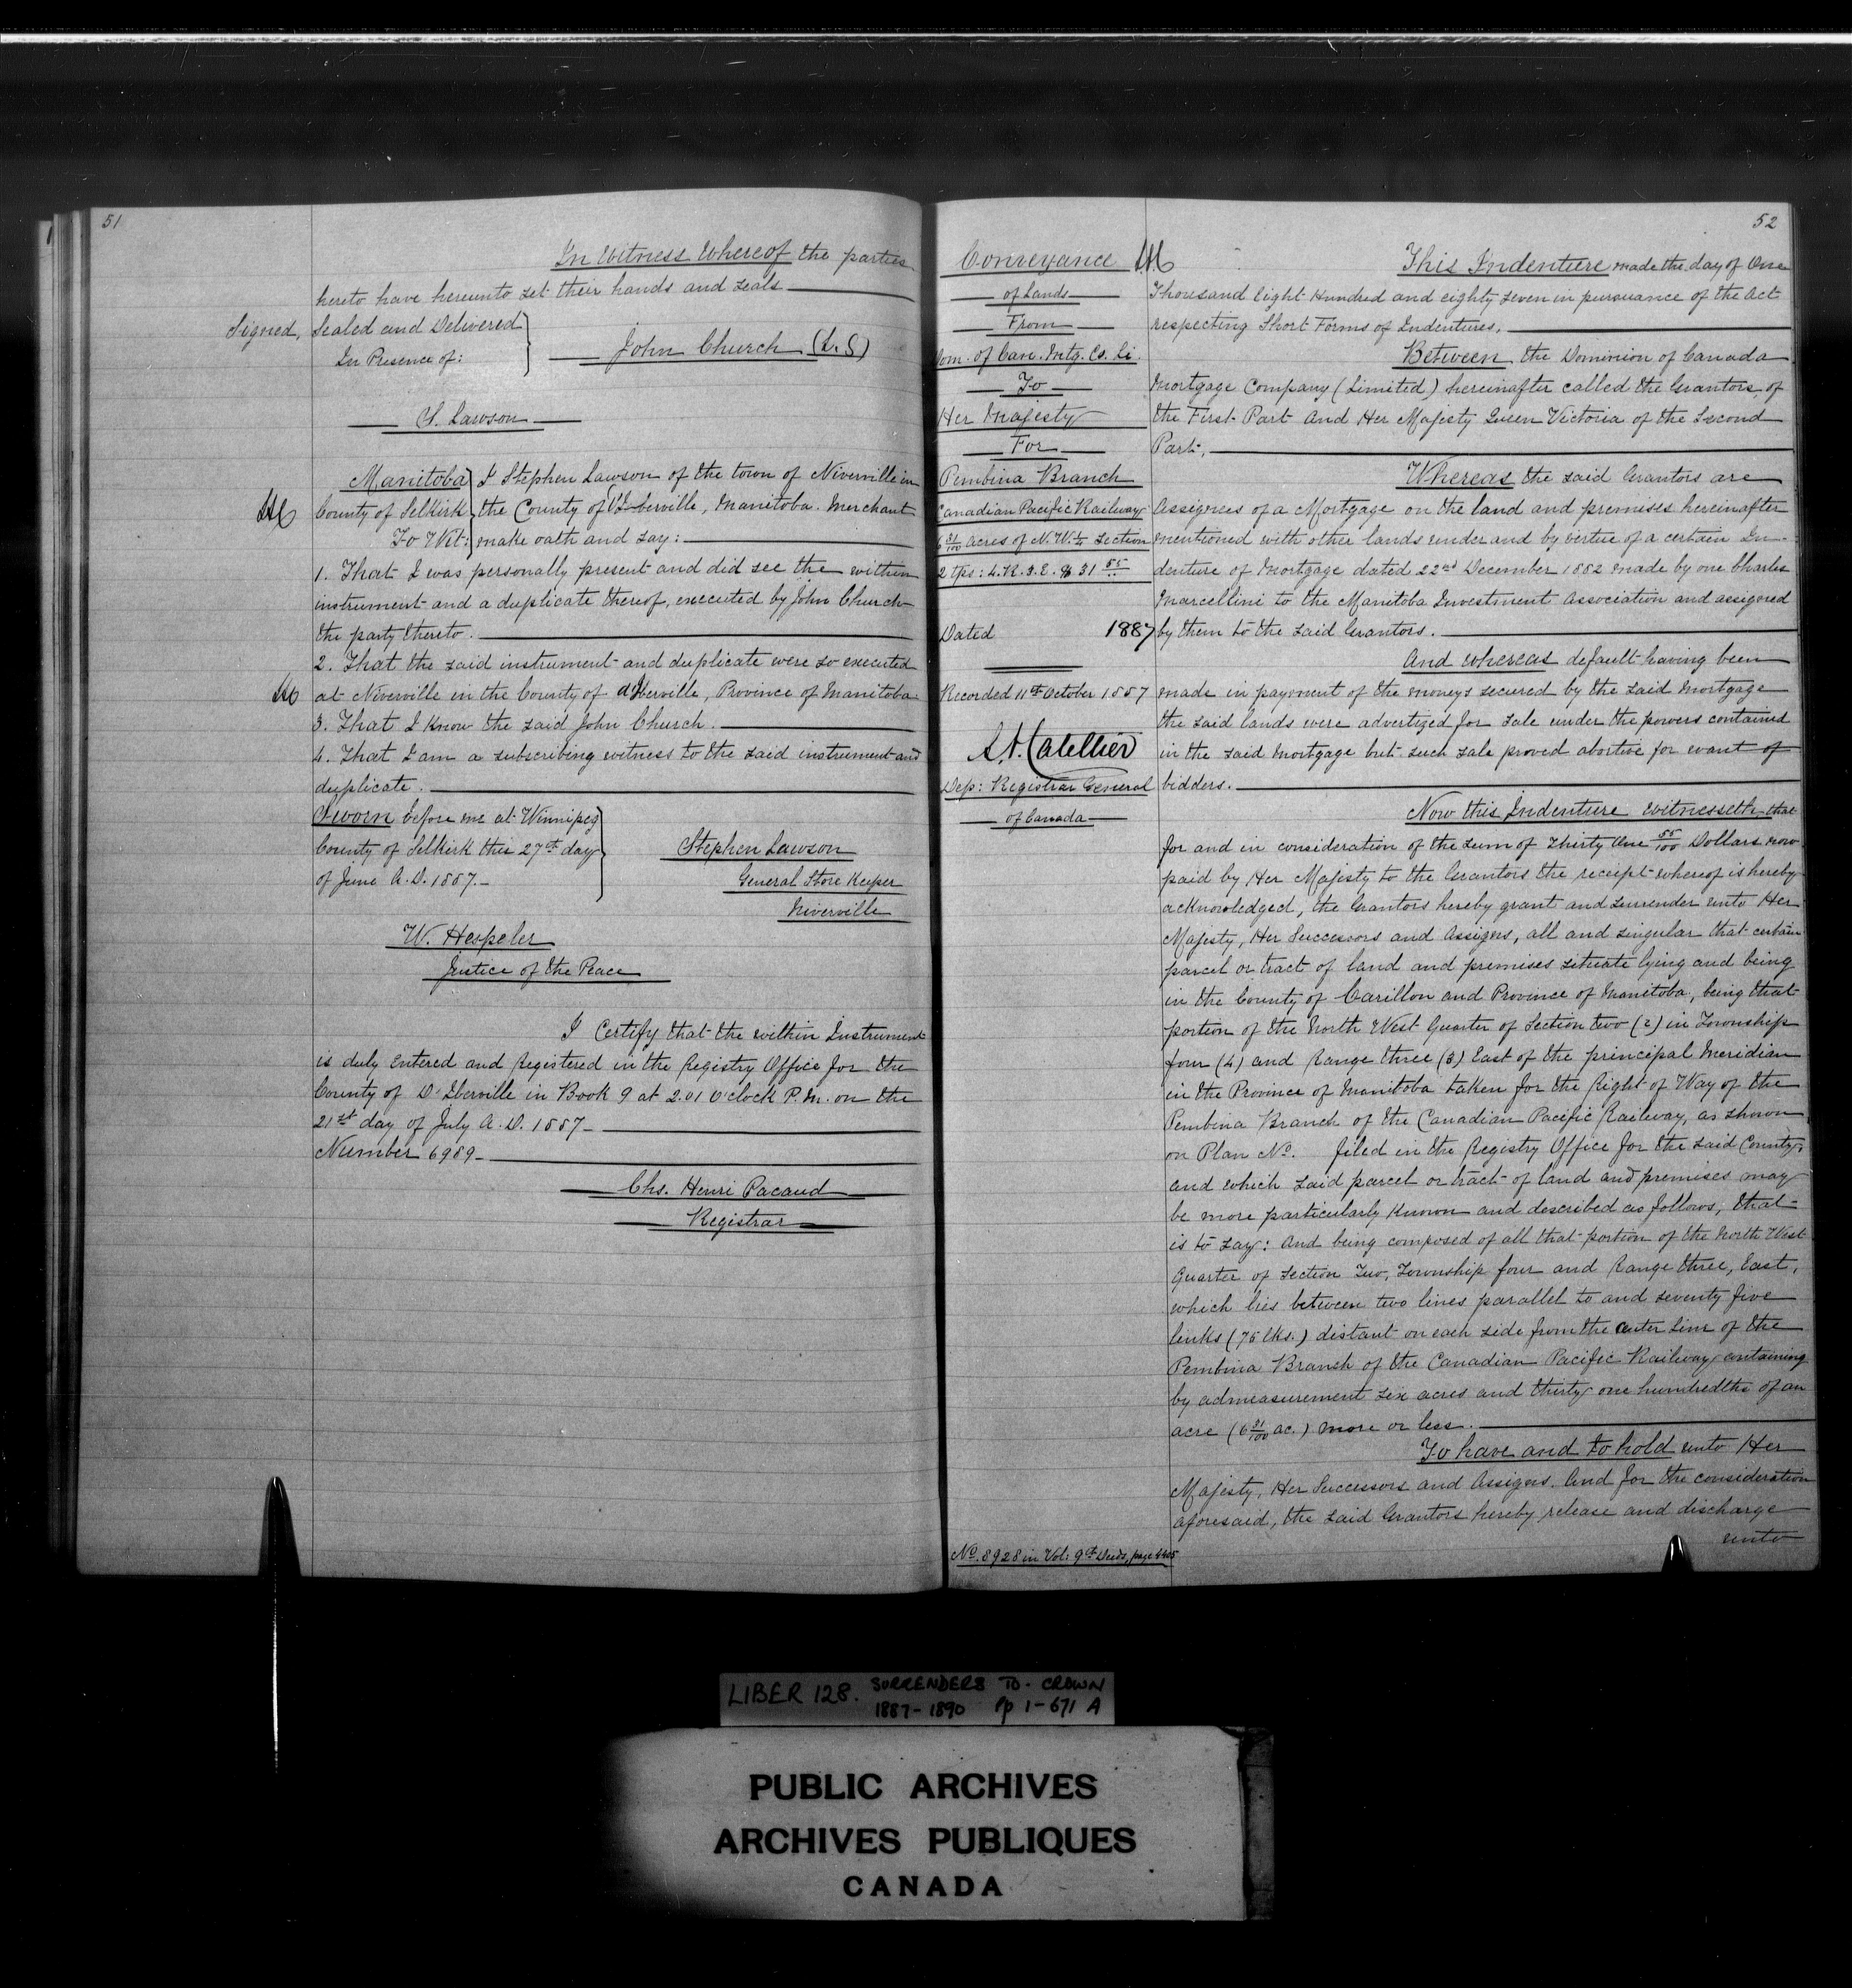 51
In Witness Whereof the parties
hereto have hereunto set their hands and seals
Signed, Sealed and Delivered
In Presence of:
John Church (L.S)
S. Lawson
Manitoba
County of Selkirk
To Wit:
I Stephen Lawson of the town of Niverville in
the County of D'Iberville, Manitoba. Merchant
make oath and say:
1. That I was personally present and did see the within
instrument and a duplicate thereof, executed by John Church
the party thereto.
2. That the said instrument and duplicate were so executed
at Niverville in the County of d'Iberville, Province of Manitoba
3. That I know the said John Church.
4. That I am a subscribing witness to the said instrument and
duplicate.
Sworn before me at Winnipeg
County of Selkirk this 27th day
of June A.D. 1887.
Stephen Lawson
General Store Keeper
Niverville
W. Hespeler
Justice of the Peace
I Certify that the within Instrument
is duly Entered and Registered in the Registry Office for the
County of D'Iberville in Book 9 at 2.01 O'clock P.M. on the
21st day of July A.D. 1887
Number 6989
Chs. Henri Pacaud
Registrar
52
Conveyance
of Lands
From
Dom. of Can. Mtg. Co. Li.
To
Her Majesty
For
Pembina Branch
Canadian Pacific Railway
6 31/100 acres of N.W. 1/4 Section
2 tps: 4. R. 3. E. $ 31 55
Dated 1887
Recorded 11th October 1887
Dep: Registrar General
of Canada
This Indenture made the day of One
Thousand Eight Hundred and eighty seven in pursuance of the Act
respecting Short Forms of Indentures.
Between the Dominion of Canada
Mortgage Company (Limited) hereinafter called the Grantors, of
the First Part And Her Majesty Queen Victoria of the Second
Part.
Whereas the said Grantors are
Assignees of a Mortgage on the land and premises hereinafter
mentioned with other lands under and by virtue of a certain In-
denture of Mortgage dated 22nd December 1882 made by one Charles
Marcellini to the Manitoba Investment Association and assigned
by them to the said Grantors.
And whereas default having been
made in payment of the moneys secured by the said Mortgage
the said lands were advertized for sale under the powers contained
in the said Mortgage but such sale proved abortive for want of
bidders.
Now this Indenture witnesseth that
for and in consideration of the sum of Thirty One 55/100 Dollars now
paid by Her Majesty to the Grantors the receipt whereof is hereby
acknowledged, the Grantors hereby grant and surrender unto Her
Majesty, Her Successors and Assigns, all and singular that certain
parcel or tract of land and premises situate lying and being
in the County of Carillon and Province of Manitoba, being that
portion of the North West Quarter of Section two (2) in Township
four (4) and Range three (3) East of the principal Meridian
in the Province of Manitoba taken for the Right of Way of the
Pembina Branch of the Canadian Pacific Railway, as shown
on Plan No. filed in the Registry Office for the said County,
and which said parcel or tract of land and premises may
be more particularly known and described as follows, that
is to say: And being composed of all that portion of the North West
Quarter of Section Two, Township four and Range three, East,
which lies between two lines parallel to and seventy five
links (75 lks.) distant on each side from the center line of the
Pembina Branch of the Canadian Pacific Railway containing
by admeasurement six acres and thirty one hundredths of an
acre (6 31/100 ac.) more or less.
To have and to hold unto Her
Majesty, Her Successors and Assigns. And for the consideration
aforesaid, the said Grantors hereby release and discharge
unto
No. 8928 in Vol: 9th Deeds, page
LIBER 128. SURRENDERS TO CROWN
1887-1890 pp 1-671 A
PUBLIC ARCHIVES
ARCHIVES PUBLIQUES
CANADA